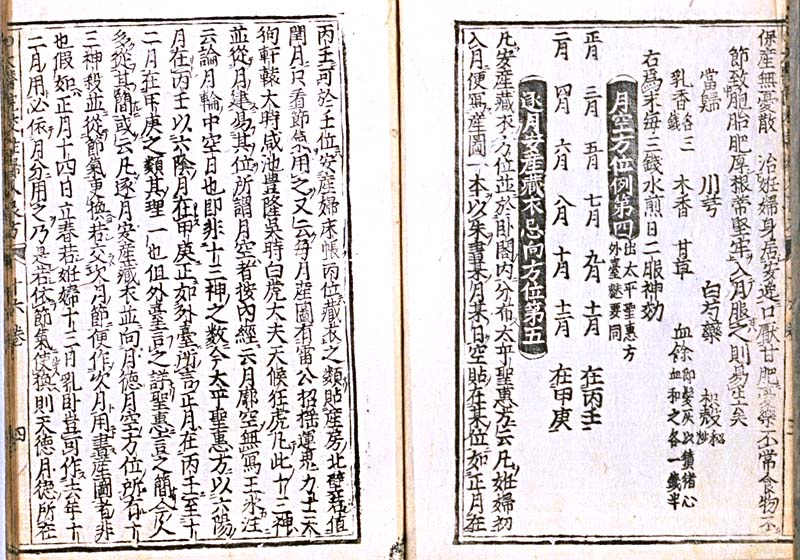 保產無憂散 治妊婦身居安逸口厭甘肥醫藥不常食物不
節致胞胎肥厚根常堅牢入月服之則易生矣
當歸 川芎 白芍藥 枳殼麩炒
乳香各三錢 木香 甘草 血餘即髮灰以 猪心血和之各一錢半
右爲末每三錢水煎日二服神効
月空方位例第四 出太平聖惠方外臺祕要同
正月 三月 五月 七月 九月 十一月 在丙壬
二月 四月 六月 八月 十月 十二月 在甲庚
逐月安產藏衣忌向方位第五
凡安產藏衣方位並於卧閤內分布太平聖惠方云凡妊婦初
入月便寫產圖一本以朱書某月某日空貼在某位如正月在
丙壬可於壬位安產婦床帳丙位藏衣之類貼產房北壁若值
閏月只看節氣用之又云每月產圖有雷公招搖運鬼力士天
狗軒轅大時咸池豊隆吳時白虎大夫天候狂虎凡此十三神
並從月建易其位所謂月空者按內經云月廓空無寫王氷注
云論月輪中空日也即非十三神之數今太平聖惠方以六陽
月在丙壬以六陰月在甲庚正如外臺所言正月在丙壬至十
二月在甲庚之類其理一也但外臺言之詳聖惠言之簡今人
多從其簡或云凡逐月安產藏衣並向月德月空方位所有十
三神殺並從節氣更換若交次月節便作次月用書產圖者非
也假如正月十四日立春若妊婦十三日乳卧豈可作去年十
二月用必依月分用之乃是若依節氣使換則天德月德所在